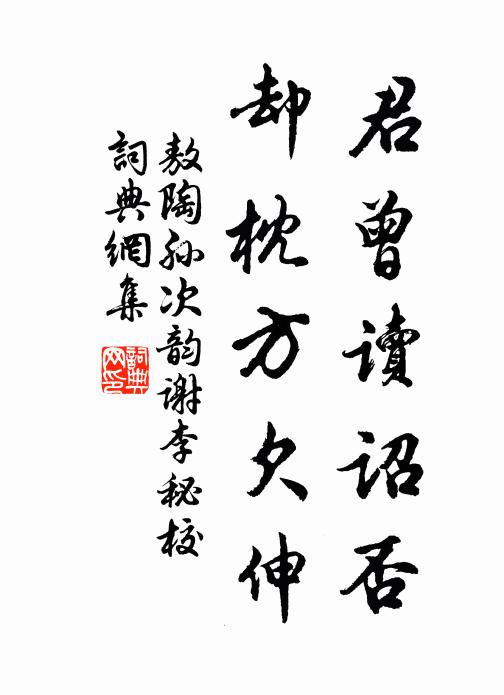 君曾讀詔否
却枕方欠伸
敖陶孙次韵谢李秘校
詞典網集
詞典網印